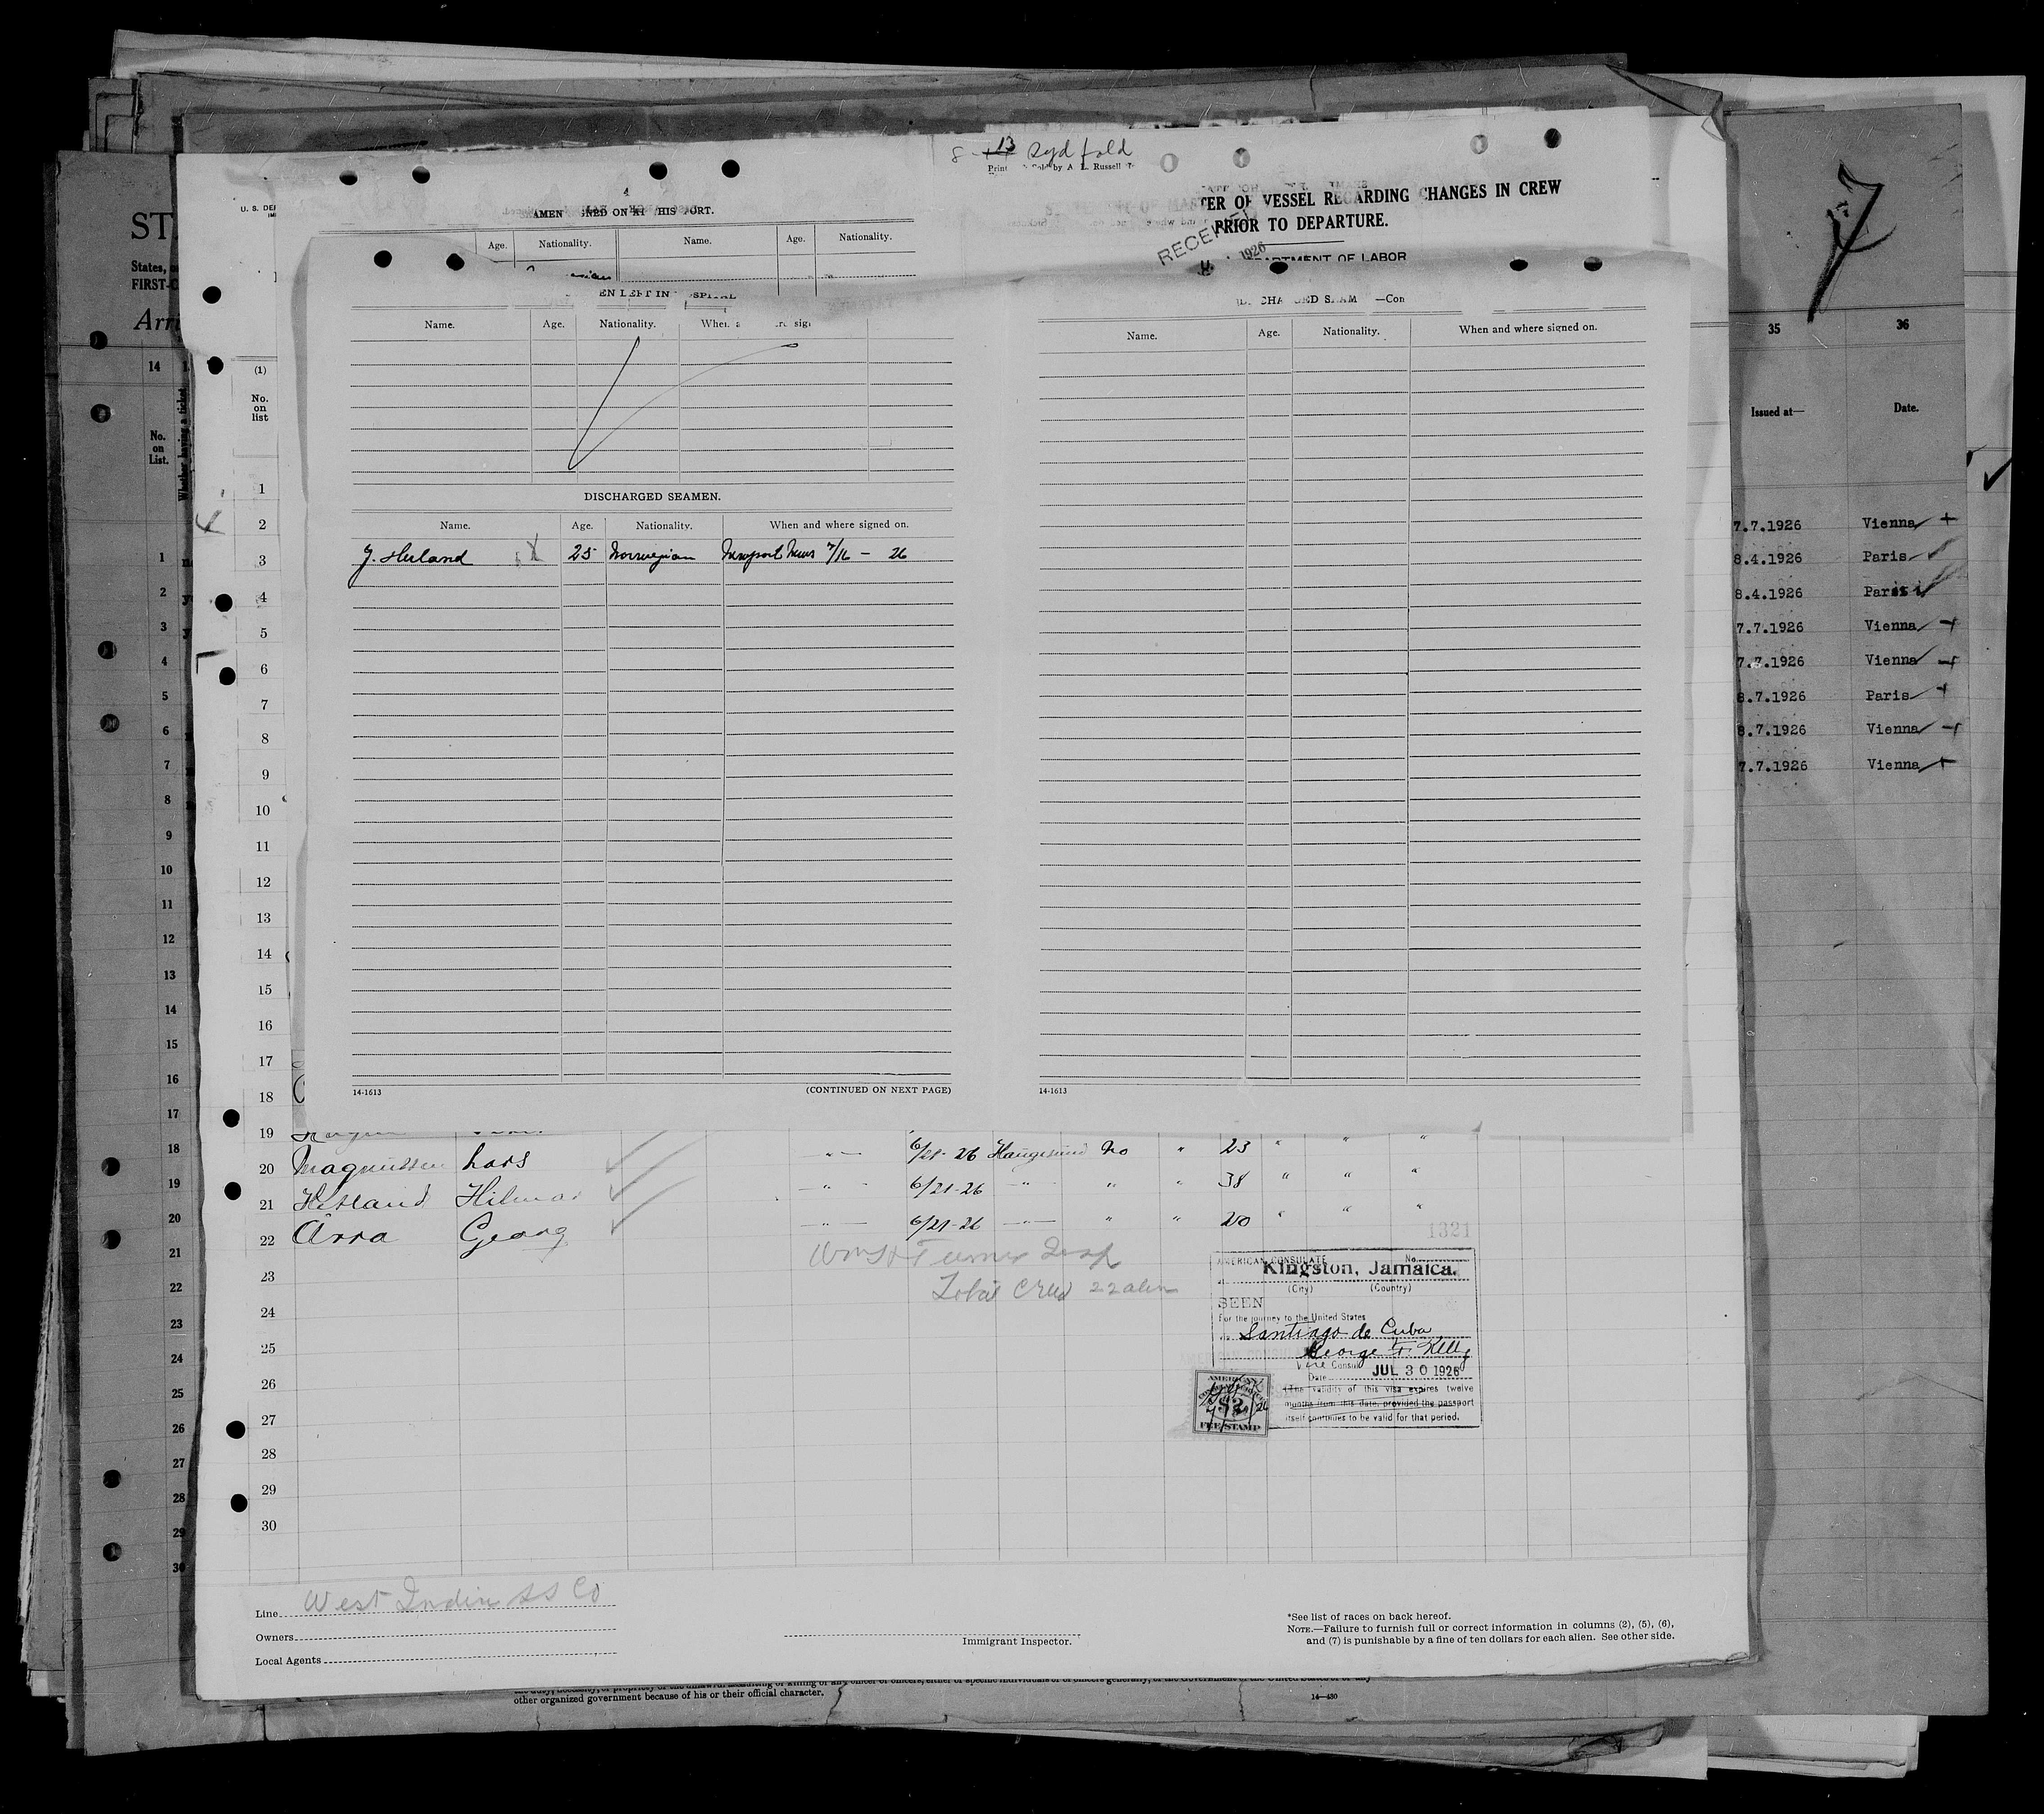 8-13 Sydfold
Sold by A. L. Russell
U. S. DEP
SIGNED ON AT THIS PORT.
Age. Nationality. Name. Age. Nationality.
TER OF VESSEL REGARDING CHANGES IN CREW
PRIOR TO DEPARTURE.
RECEIVED
1926
DEPARTMENT OF LABOR
EN LEFT IN HOSPITAL
Name. Age. Nationality.
DISCHARGED SEAMEN.
Name. Age. Nationality. When and where signed on.
J. Heiland 25 Norwegian Newport News 7/16 - 26
14-1613 (CONTINUED ON NEXT PAGE)
DISCHARGED SEAMEN—Con
Name. Age. Nationality. When and where signed on.
14-1613
ST
States,
FIRST-C
Arri
14
No. on List.
Whether having a ticket
1
2
3
4
5
6
7
8
9
10
11
12
13
14
15
16
17
18
19
20
21
22
23
24
25
26
27
28
29
30
(1)
No. on list
1
2
3
4
5
6
7
8
9
10
11
12
13
14
15
16
17
18
19
20 Magnussen Lars —"— 6/21-26 Haugesund No " 23 " " "
21 Hetland Hilmar —"— 6/21-26 —"— " " 38 " " "
22 Arra Georg —"— 6/21-26 —"— " " 20 " " "
23
24
25
26
27
28
29
30
Wm H Turner Insp
Total Crew 22 alien
1321
AMERICAN CONSULATE No.
at Kingston, Jamaica.
(City) (Country)
SEEN
For the journey to the United States
via Santiago de Cuba
George F. Kelly
Vice Consul
Date JUL 30 1926
(The validity of this visa expires twelve
months from this date, provided the passport
itself continues to be valid for that period.
AMERICAN
$2
FEE STAMP
Line West Indian SS Co
Owners
Local Agents
Immigrant Inspector.
*See list of races on back hereof.
NOTE.—Failure to furnish full or correct information in columns (2), (5), (6),
and (7) is punishable by a fine of ten dollars for each alien. See other side.
other organized government because of his or their official character.
14—430
7
35 36
Issued at— Date.
7.7.1926 Vienna
8.4.1926 Paris
8.4.1926 Paris
7.7.1926 Vienna
7.7.1926 Vienna
8.7.1926 Paris
8.7.1926 Vienna
7.7.1926 Vienna